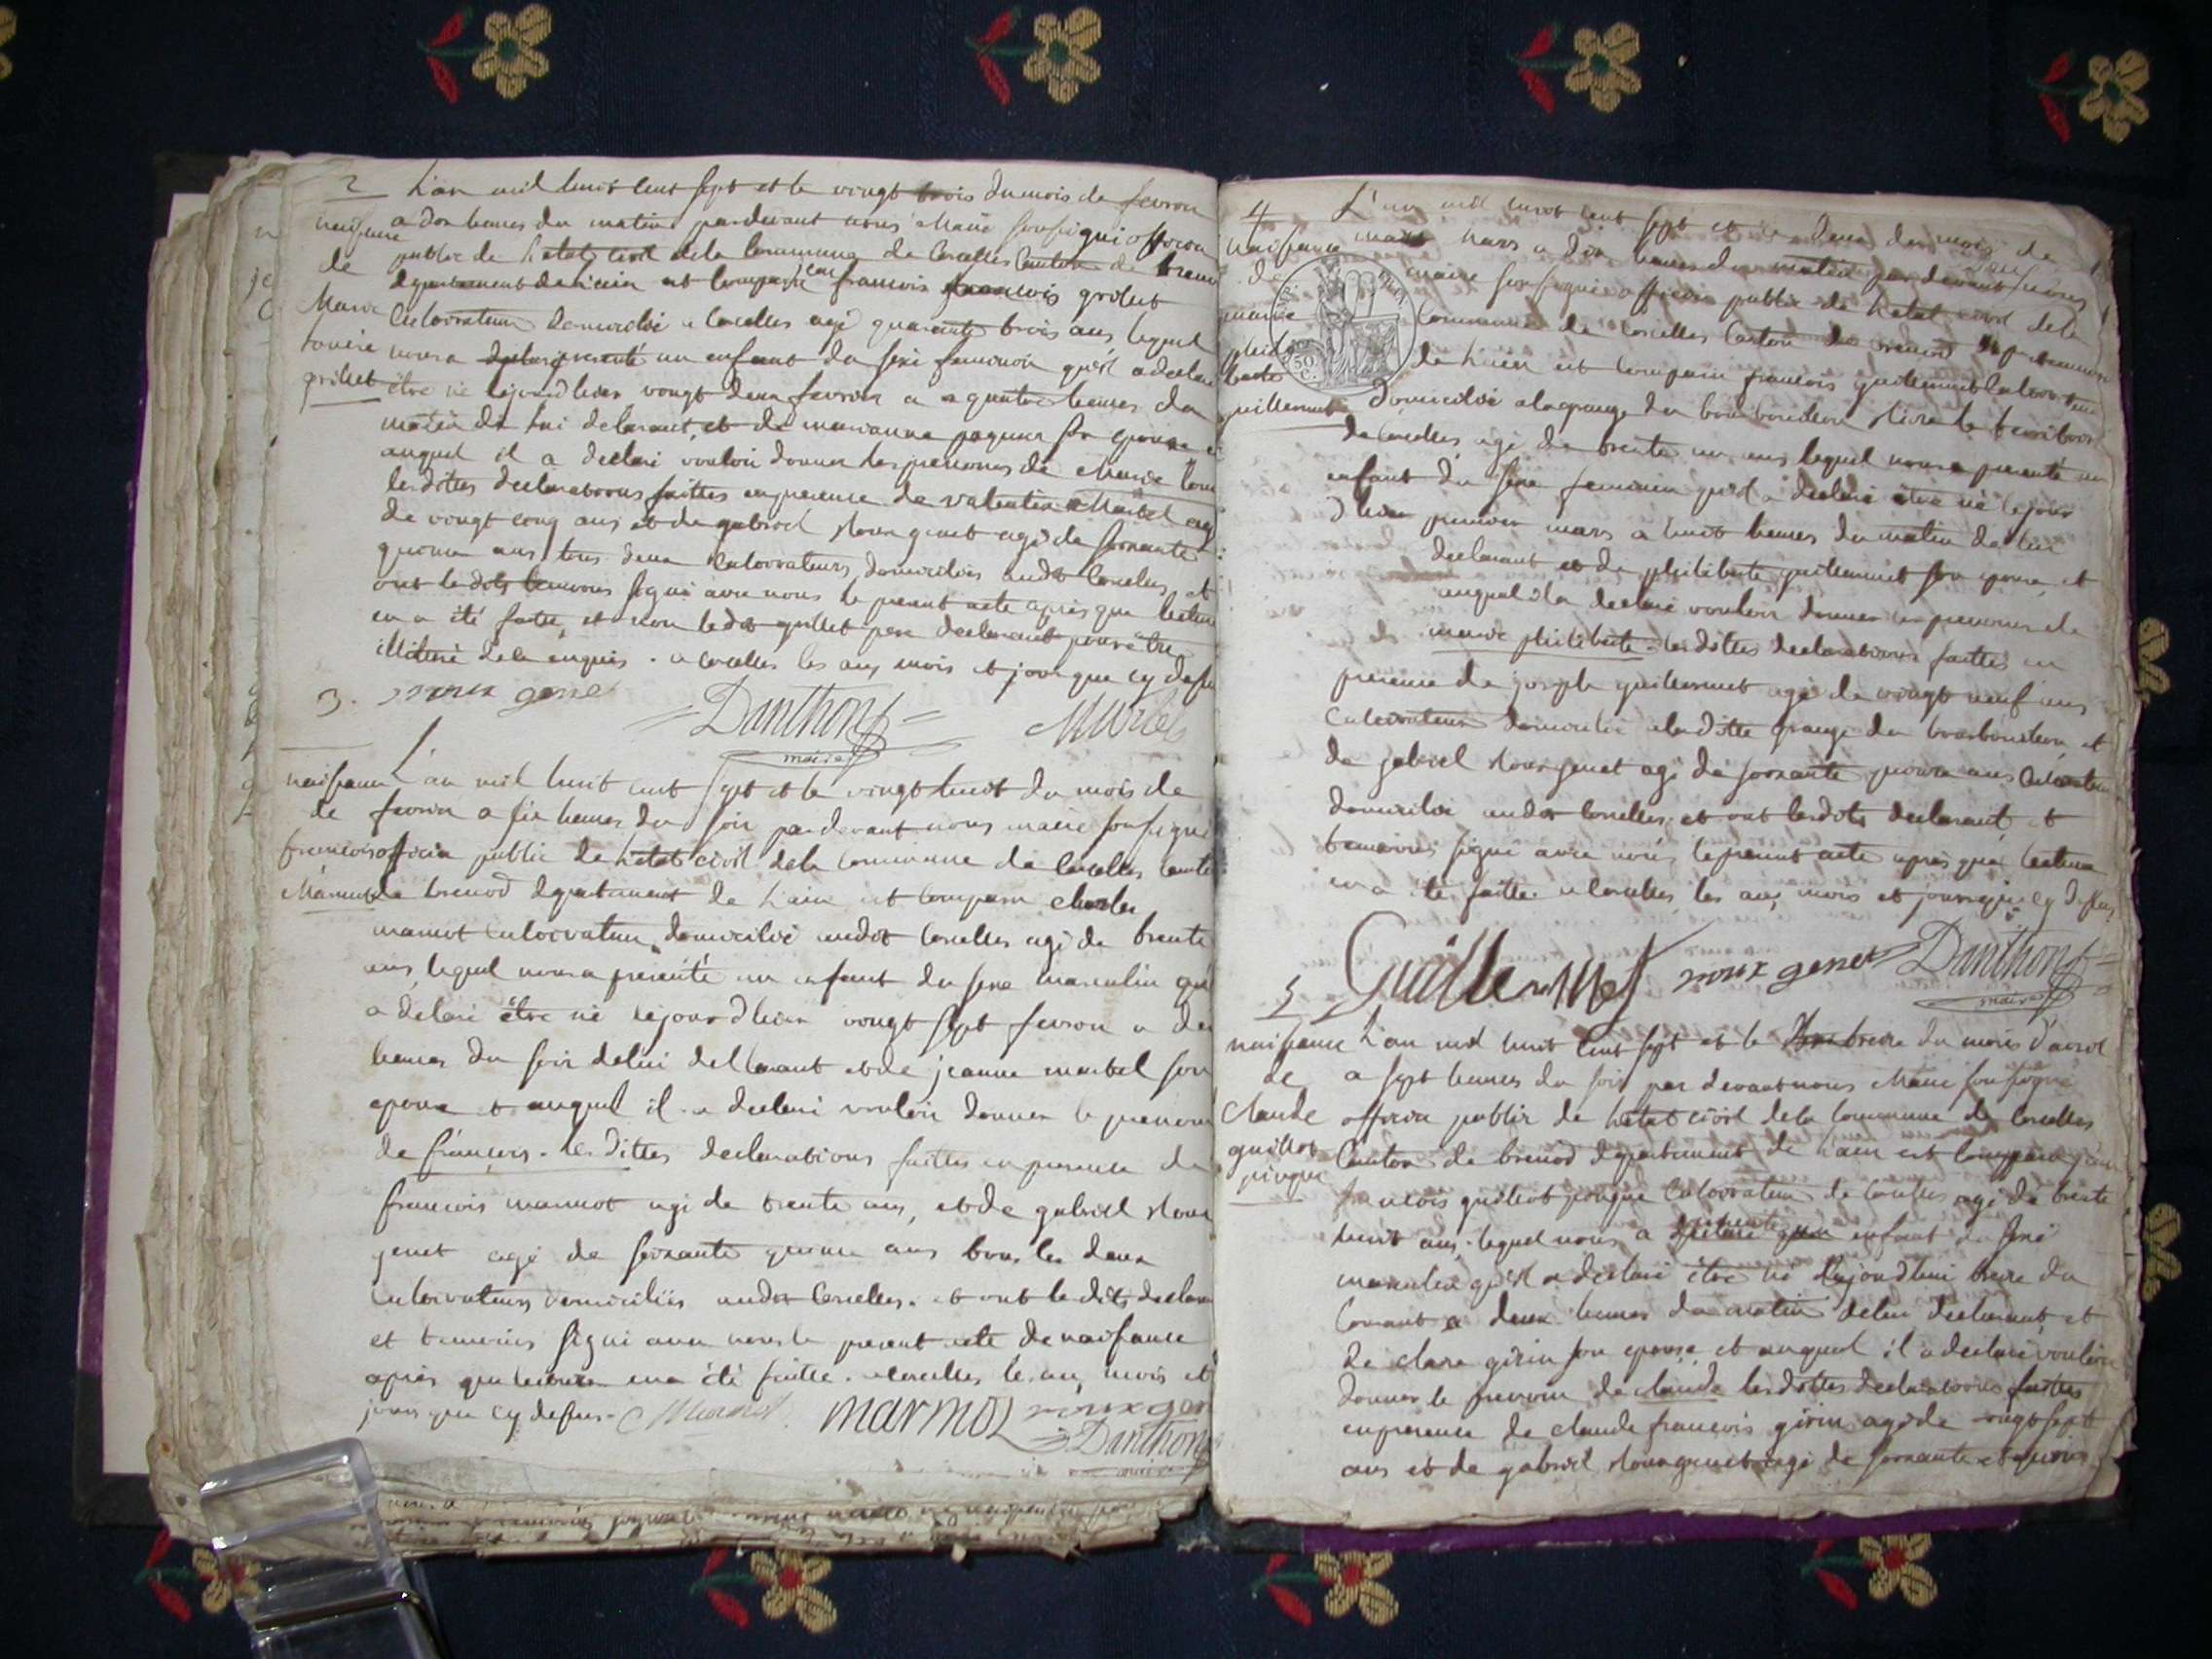 2
L'an mil huit cent sept et le vingt trois du mois de fevrier
naissance
a dix heures du matin pardevant nous Maire soussigné officier
public de l'etat civil de la Commune de Corcelles Canton de brenod
de
departement de l'ain est comparu jean francois francois grillet
Marie
Cultivateur domicilié a Corcelles agé quarante trois ans lequel
nous a declaré presenté un enfant du sexe feminin qu'il a declaré
grillet
être né lejourdhier vingt deux fevrier a quatre heures du
matin de lui declarant, et de marianne paquier son epouse et
auquel il a declaré vouloir donner les prenoms de Marie
lesdittes declarations faittes en presence de valentin Martel agé
de vingt cinq ans et de gabriel Roux genet agé de soixante
quinze ans tous deux Cultivateurs domiciliés audit Corcelles, et
ont lesdits temoins signé avec nous le present acte après que lecture
en a été faitte, et non ledit grillet pere declarant pour être
illitéré de ce enquis. a Corcelles les an, mois et jour que cy dessus
roux genet
Danthon
maire
Martel
3.
naissance
L'an mil huit cent sept et le vingt huit du mois de
de
fevrier a six heures du soir pardevant nous maire soussigné
francois
officier public de l'etat civil de la Commune de Corcelles Canton
Marmot
de brenod departement de l'ain est comparu charles
marmot Cultivateur domicilié audit Corcelles agé de trente
ans, lequel nous a presenté un enfant du sexe masculin qu'il
a delaré être né lejourdhier vingt sept fevrier a
heures du soir de lui dellarant et de jeanne martel son
epouse et auquel il a declaré vouloir donner le prenom
de françois. les dittes declarations faittes en presence de
francois marmot agé de trente ans, et de gabriel Roux
genet agé de soixante quinze ans tous les deux
Cultivateurs domiciliés audit Corcelles. et ont lesdits declarant
et temoins signé avec nous le present acte de naissance
après que lecture en a été faitte. a Corcelles les an, mois et
jours que cy dessus.
Marmot
marmot
roux genet
Danthon
maire
4
L'an mil huit cent sept et le deux du mois de
naissance
mars a dix heures du matin par devant nous
de
maire soussigné officier public de l'etat civil de la
marie
Commune de Corcelles Canton de brenod departement
phili
berte
de l'ain est comparu francois guillermet Cultivateur
guillermet
domicilié a la grange du bourbouillon Riere le territoire
de Corcelles, agé de trente un ans lequel nous a presenté un
enfant du sexe feminin qu'il a declaré être né lejour
d'hier premier mars a huit heures du matin de lui
declarant et de philiberte guillermet son epouse, et
auquel il a declaré vouloir donner les prenoms de
marie philiberte. les dittes declarations faittes en
presence de joseph guillermet agé de vingt neuf ans
Cultivateur domicilié a laditte grange du bourbouillon, et
de gabriel Roux genet agé de soixante quinze ans Cultivateur
domicilié audit Corcelles, et ont lesdits declarant, et
temoins signé avec nous le present acte après que lecture
en a été faitte. a Corcelles, les an, mois et jours que cy dessus,
Guillermet
roux genet
Danthon
maire
5
naissance
L'an mil huit cent sept et le treize du mois d'avril
de
a sept heures du soir par devant nous Maire soussigné
Claude
officier public de l'etat civil de la Commune de Corcelles
guillot
Canton de brenod departement de l'ain est comparu jean
pinque
francois guillot pinque Cultivateur de Corcelles agé de trente
huit ans. lequel nous a declaré presenté un enfant du sexe
masculin qu'il a declaré être né d'aujourd'hui treize du
Courant a deux heures du matin de lui declarant et
de clara girin son epouse, et auquel il a declaré vouloir
donner le prenom de claude lesdittes declarations faittes
en presence de claude francois girin agé de vingt sept
ans et de gabriel Roux genet agé de soixante et quinze